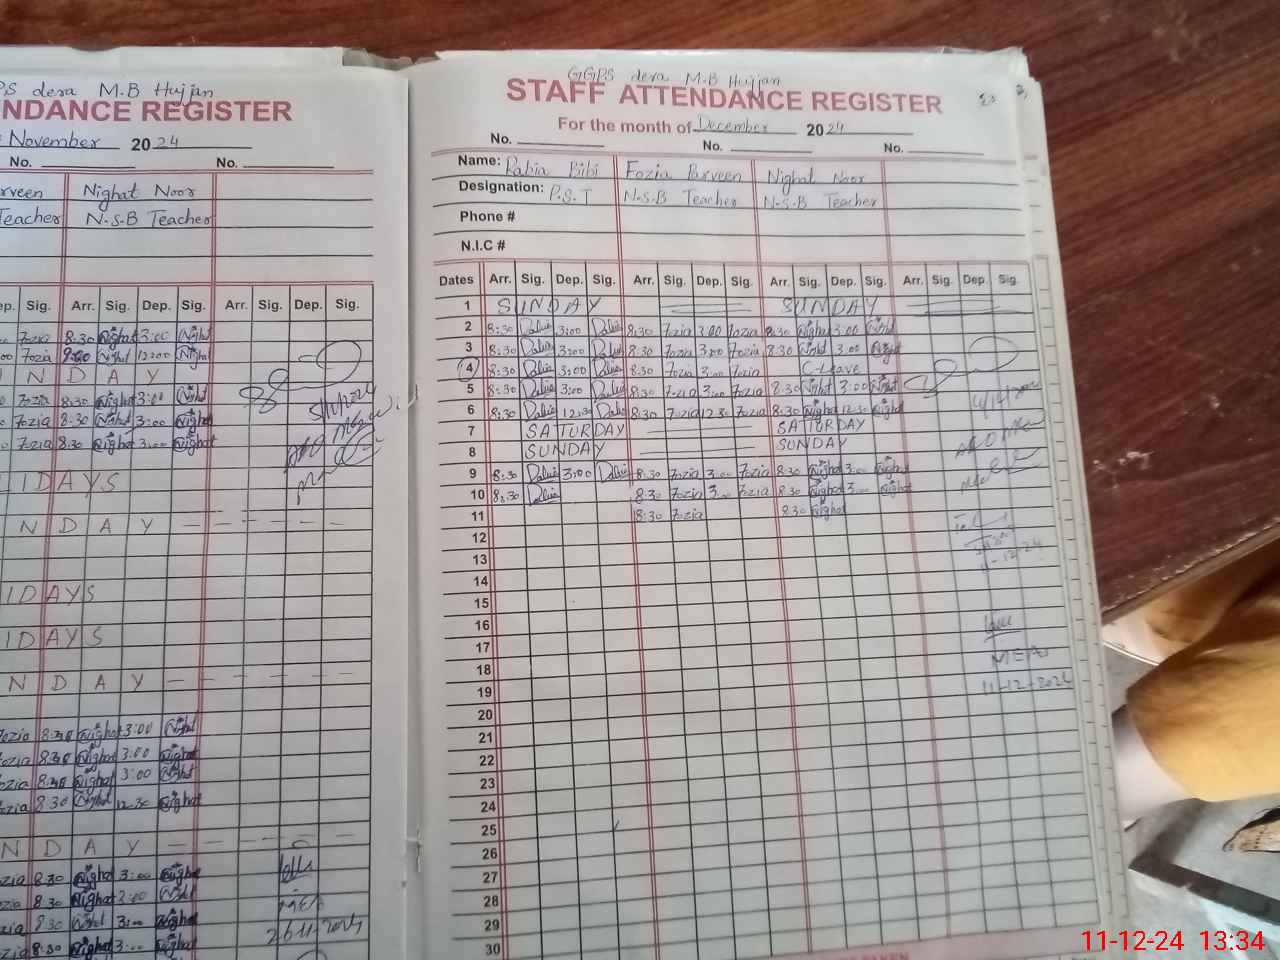 PS dera M.B Hujjan
NDANCE REGISTER
November 2024
No. No.
rveen Nighat Noor
Teacher N-S-B Teacher
ep. Sig. Arr. Sig. Dep. Sig. Arr. Sig. Dep. Sig.
Fozia 8:30 Nighat 3:00 Nighat
00 Fozia 9:00 Nighat 12:00 Nighat
N D A Y
Fozia 8:30 Nighat 3:00 Nighat
Fozia 8:30 Nighat 3:00 Nighat
Fozia 8:30 Nighat 3:00 Nighat
IDAYS
N D A Y
IDAYS
IDAYS
N D A Y
Fozia 8:30 Nighat 3:00 Nighat
ozia 8:30 Nighat 3:00 Nighat
ozia 8:30 Nighat 3:00 Nighat
ozia 8:30 Nighat 12:30 Nighat
N D A Y
zia 8:30 Nighat 3:00 Nighat
zia 8:30 Nighat 3:00 Nighat
zia 8:30 Nighat 3:00 Nighat
zia 8:30 Nighat 3:00 Nighat
GGPS dera M.B Hujjan
STAFF ATTENDANCE REGISTER
For the month of December 2024
No. No. No.
Name: Rabia Bibi Fozia Parveen Nighat Noor
Designation: P.S.T N-S-B Teacher N-S-B Teacher
Phone #
N.I.C #
Dates Arr. Sig. Dep. Sig. Arr. Sig. Dep. Sig. Arr. Sig. Dep. Sig. Arr. Sig. Dep. Sig.
1 SUNDAY SUNDAY
2 8:30 3:00 8:30 Fozia 3:00 Fozia 8:30 Nighat 3:00 Nighat
3 8:30 3:00 8:30 Fozia 3:00 Fozia 8:30 Nighat 3:00 Nighat
4 8:30 3:00 8:30 Fozia 3:00 Fozia C-Leave
5 8:30 3:00 8:30 Fozia 3:00 Fozia 8:30 Nighat 3:00 Nighat
6 8:30 12:30 8:30 Fozia 12:30 Fozia 8:30 Nighat 12:30 Nighat
7 SATURDAY SATURDAY
8 SUNDAY SUNDAY
9 8:30 3:00 8:30 Fozia 3:00 Fozia 8:30 Nighat 3:00 Nighat
10 8:30 8:30 Fozia 3:00 Fozia 8:30 Nighat 3:00 Nighat
11 8:30 Fozia 8:30 Nighat
12
13
14
15
16
17
18
19
20
21
22
23
24
25
26
27
28
29
30
11-12-24
MEA
11-12-2024
11-12-24 13:34